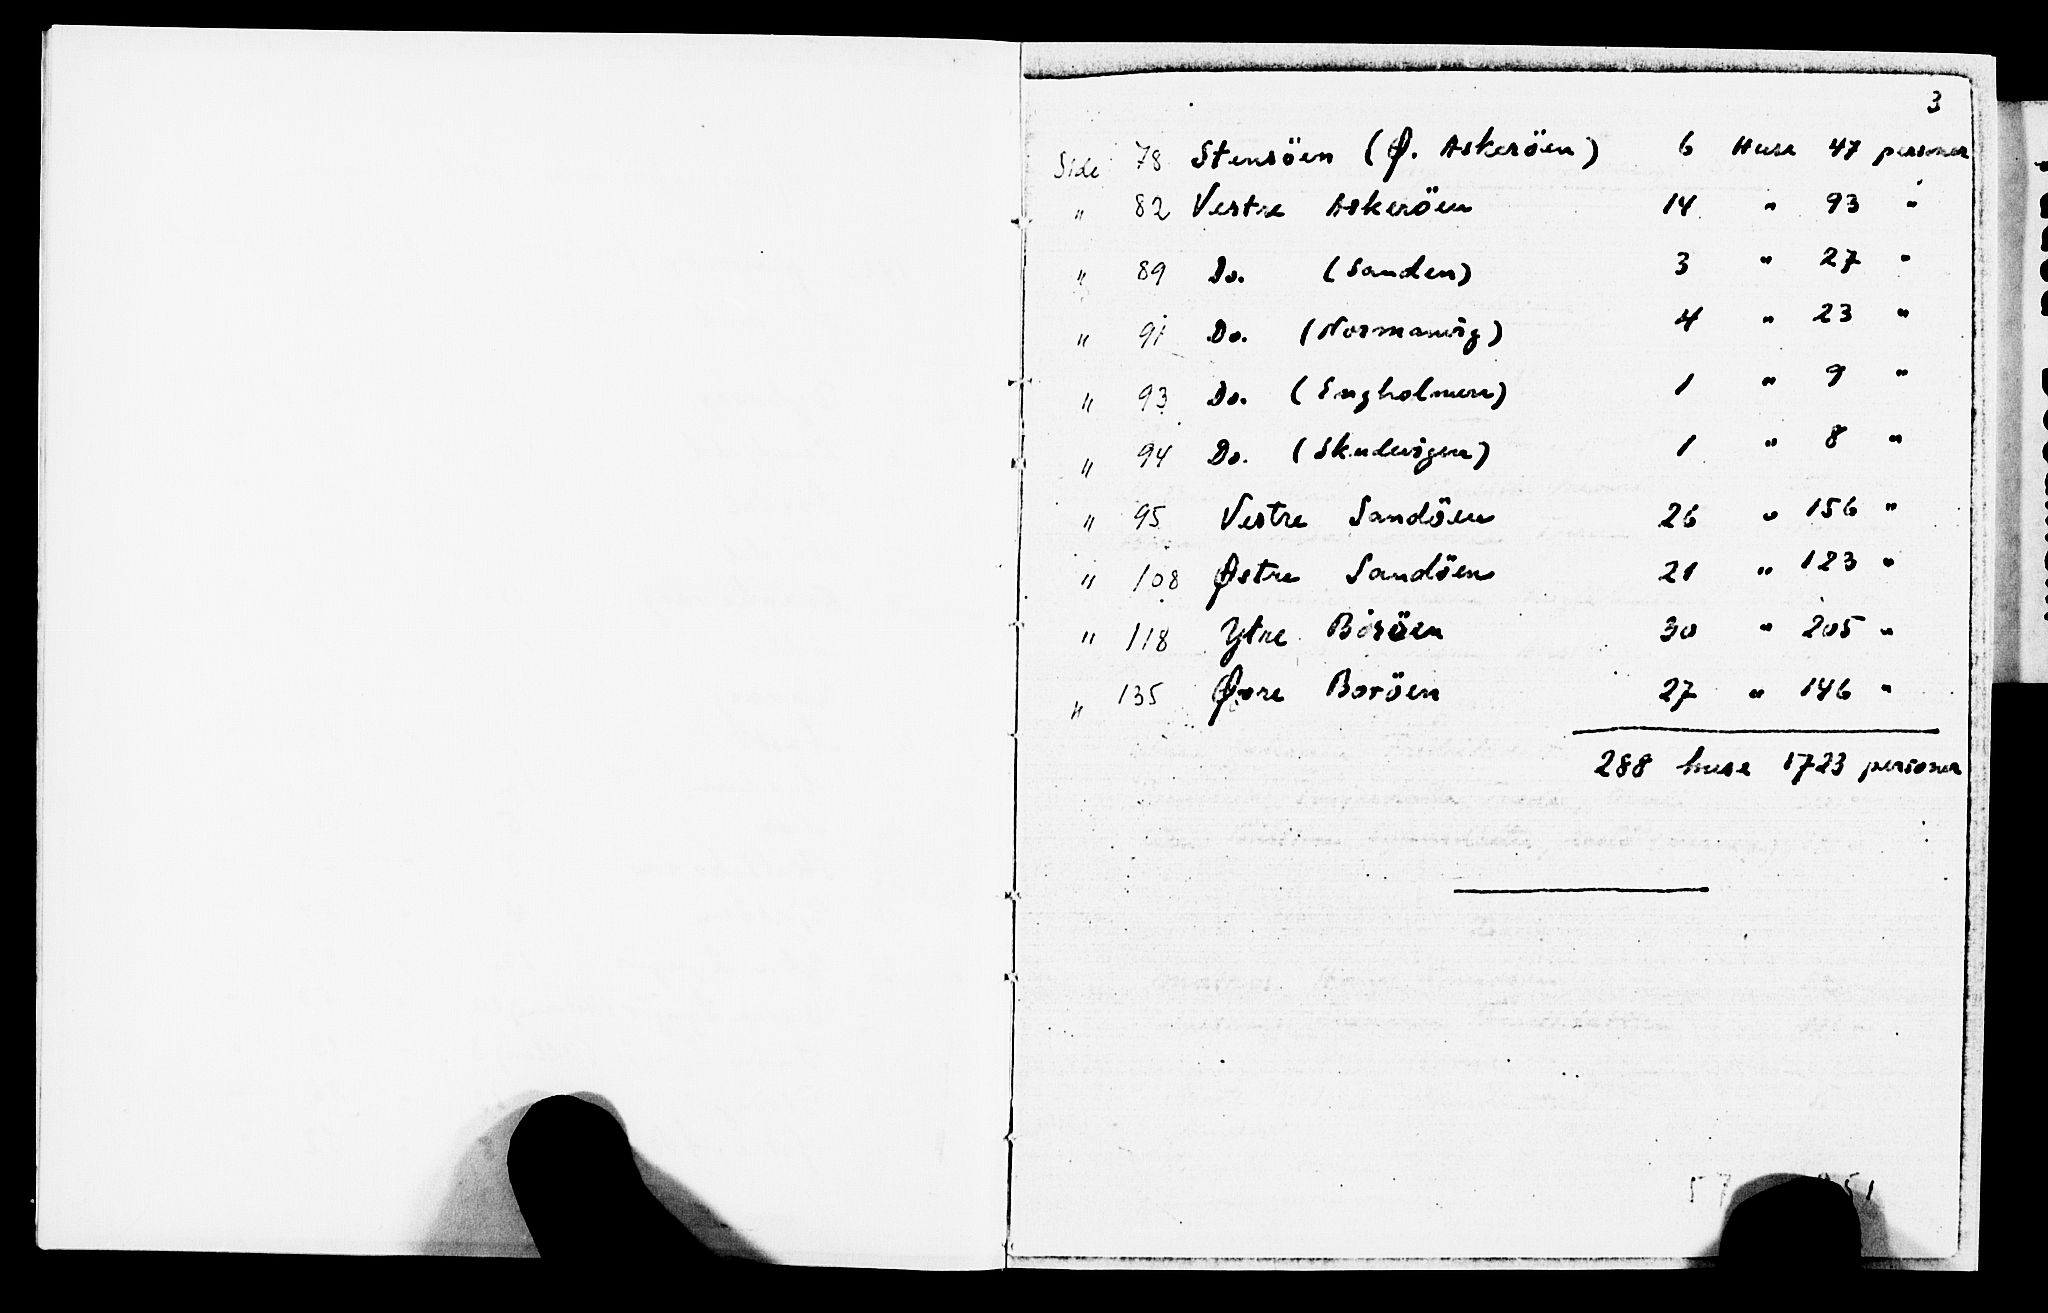 3
Side 78 Stensöen (Ø. Askeröen) 6 Huse 47 personer
" 82 Vestre Askeröen 14 " 93 "
" 89 Do. (Sanden) 3 " 27 "
" 91 Do. (Normanvig) 4 " 23 "
" 93 Do. (Engholmen) 1 " 9 "
" 94 Do. (Skudevigen) 1 " 8 "
" 95 Vestre Sandöen 26 " 156 "
" 108 Østre Sandöen 21 " 123 "
" 118 Ytre Boröen 30 " 205 "
" 135 Øvre Boröen 27 " 146 "
288 huse 1723 personer